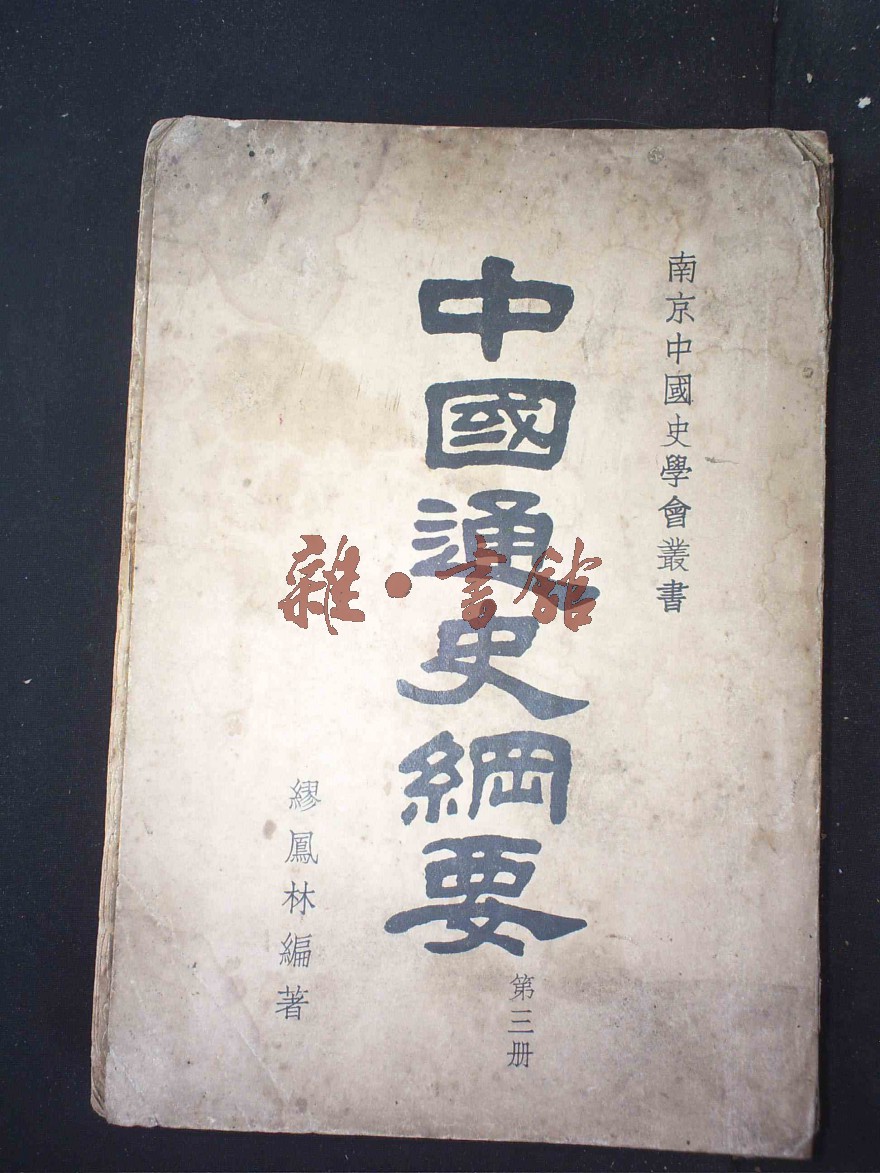 南京中國史學會叢書
中國通史綱要
第三册
繆鳳林編著
雜·書館